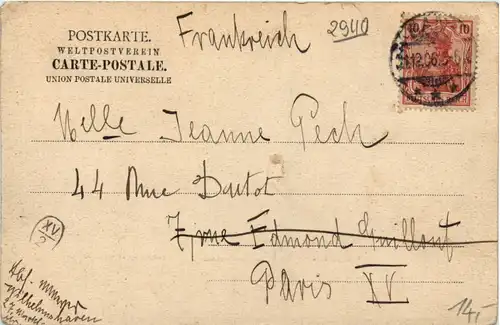 Frankreich
2940
POSTKARTE.
WELTPOSTVEREIN
CARTE-POSTALE.
UNION POSTALE UNIVERSELLE
10 10
12.06.5-6
Melle Jeanne Pech
44 Rue Dutot
7, rue Edmond Guillout
Paris XV
XV
2
Wilhelmshaven
14,-